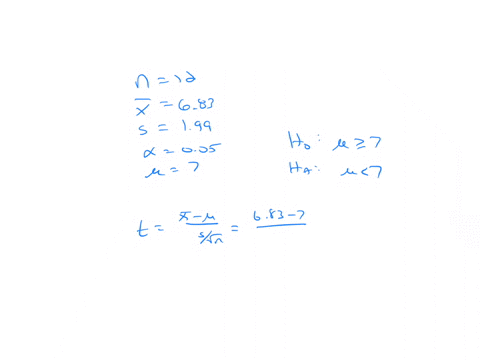 n = 12
x̄ = 6.83
s = 1.99
α = 0.05
μ = 7
H₀: μ ≥ 7
Hₐ: μ < 7
t = (x̄ - μ)/(s/√n) = (6.83 - 7)/